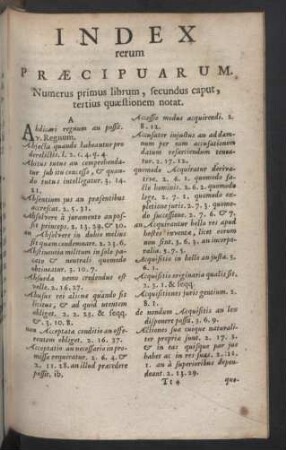 INDEX
rerum
PRÆCIPUARUM.
Numerus primus librum, secundus caput,
tertius quæstionem notat.
A
Abdicare regnum an possit.
v. Regnum.
Abjecta quando habeatur pro
derelictis. l. 2. c. 4. q. 4.
absolvere à juramento an possit
princeps. 2. 13. 29. & 30.
an Absolvere in dubio melius
sit quam condemnare. 2. 23. 6.
obtineatur. 3. 10. 7.
Absurda nemo credendus est
velle. 2. 16. 27.
Abusus rei aliena quando sit
licitus, & ad quid utentem
obliget. 2. 2. 23. & seqq.
& 3. 10. 8.
non Acceptata conditio an offerentem
obliget. 2. 16. 37.
Acceptatio an necessaria in promisso
requiratur. 2. 6. 4. &
2. 11. 28. an illud præcedere
possit. ib.
Accessio modus acquirendi. 2.
8. 12.
Accusator injustus an ad damnum
per nom accusationem
datum reservendum teneatur.
2. 17. 12.
quomodo Acquiratur derivative.
2. 6. 1. quomodo facto
hominis. 2. 6. 2. quomodo
lege. 2. 7. 1. quomodo
successione. 2. 7. 6. & 7.
an Acquirantur bello res apud
hostes inventæ, licet eorum
non sint. 3. 6. 3. an incorporalia.
3. 7. 3.
Acquisitio in bello an justa. 3.
6. 1.
Acquisitio originaria qualis sit.
2. 3. 1. & seqq.
Acquisitiones juris gentium. 2.
8. 1.
de nondum Acquisitis an lex
disponere possit. 3. 6. 9.
Actiones suæ cuique naturaliter
propria sunt. 2. 17. 2.
& in eas quisque par jus
habet ac in res suas.
an à superioribus dependeant.
2. 13. 29.
Tt 4
quo-